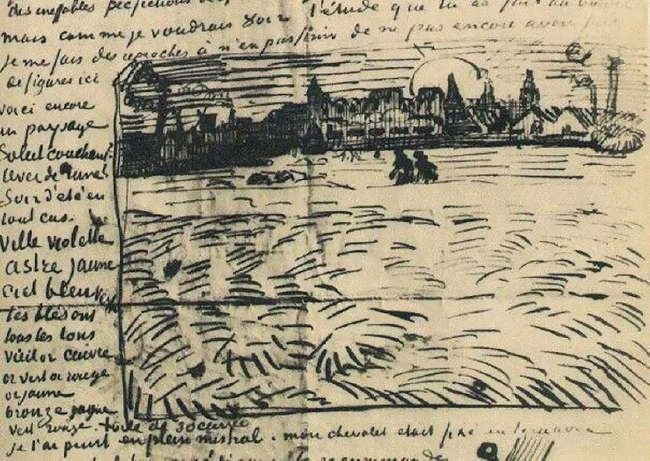 des ineffables perfections des
mais comme je voudrais voir l'étude que tu as fait au
je me fais des reproches à n'en pas finir de ne pas encore avoir fait
de figures ici
voici encore
un paysage
Soleil couchant
lever de lune
Soir d'été en
tout cas.
Ville violette
astre jaune
ciel bleu vert
les blés ont
tous les tons
vieil or cuivre
or vert or rouge
or jaune
bronze jaune
vert rouge. toile de 30 carrée
je l'ai peint en plein mistral. mon chevalet était fixé en terre avec